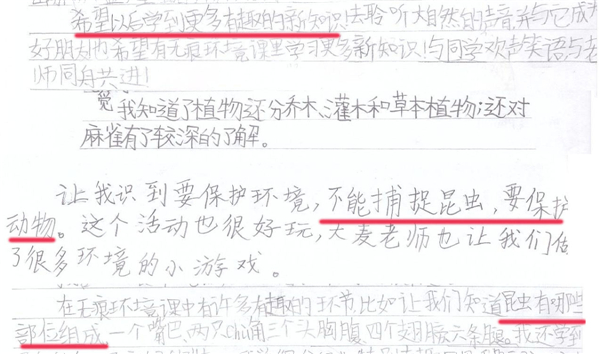 希望以后学到更多有趣的新知识!去聆听大自然的声音并与它成为
好朋友也希望有无痕环境课里学习更多新知识!与同学欢声笑语与老
师同舟共进!
觉
我知道了植物还分乔木、灌木和草本植物;还对
麻雀有了较深的了解。
让我识到要保护环境,不能捕捉昆虫,要保护
动物。这个活动也很好玩,大麦老师也让我们做
了很多环境的小游戏。
在无痕环境课中有许多有趣的环节比如让我们知道昆虫有哪些
部位组成一个嘴巴、两只chù角三个头胸腹、四个翅膀六条腿。我还学到